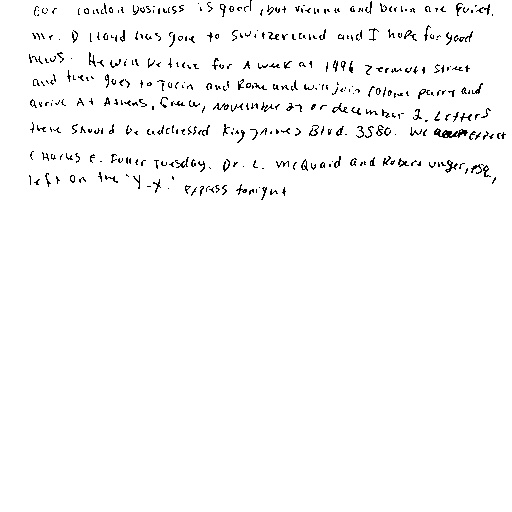 Our London business is good, but Vienna and Berlin are quiet.
Mr. D Lloyd has gone to Switzerland and I hope for good
news. He will be there for a week at 1496 Zermott Street
and then goes to Turin and Rome and will join Colonel Parry and
arrive At Athens, Greece, November 27 or december 2. Letters
there should be addressed King James Blvd. 3580. We expect
Charles E. Fuller Tuesday. Dr. L. McQuaid and Robert Unger, esq.,
left on the "Y.X." Express tonight